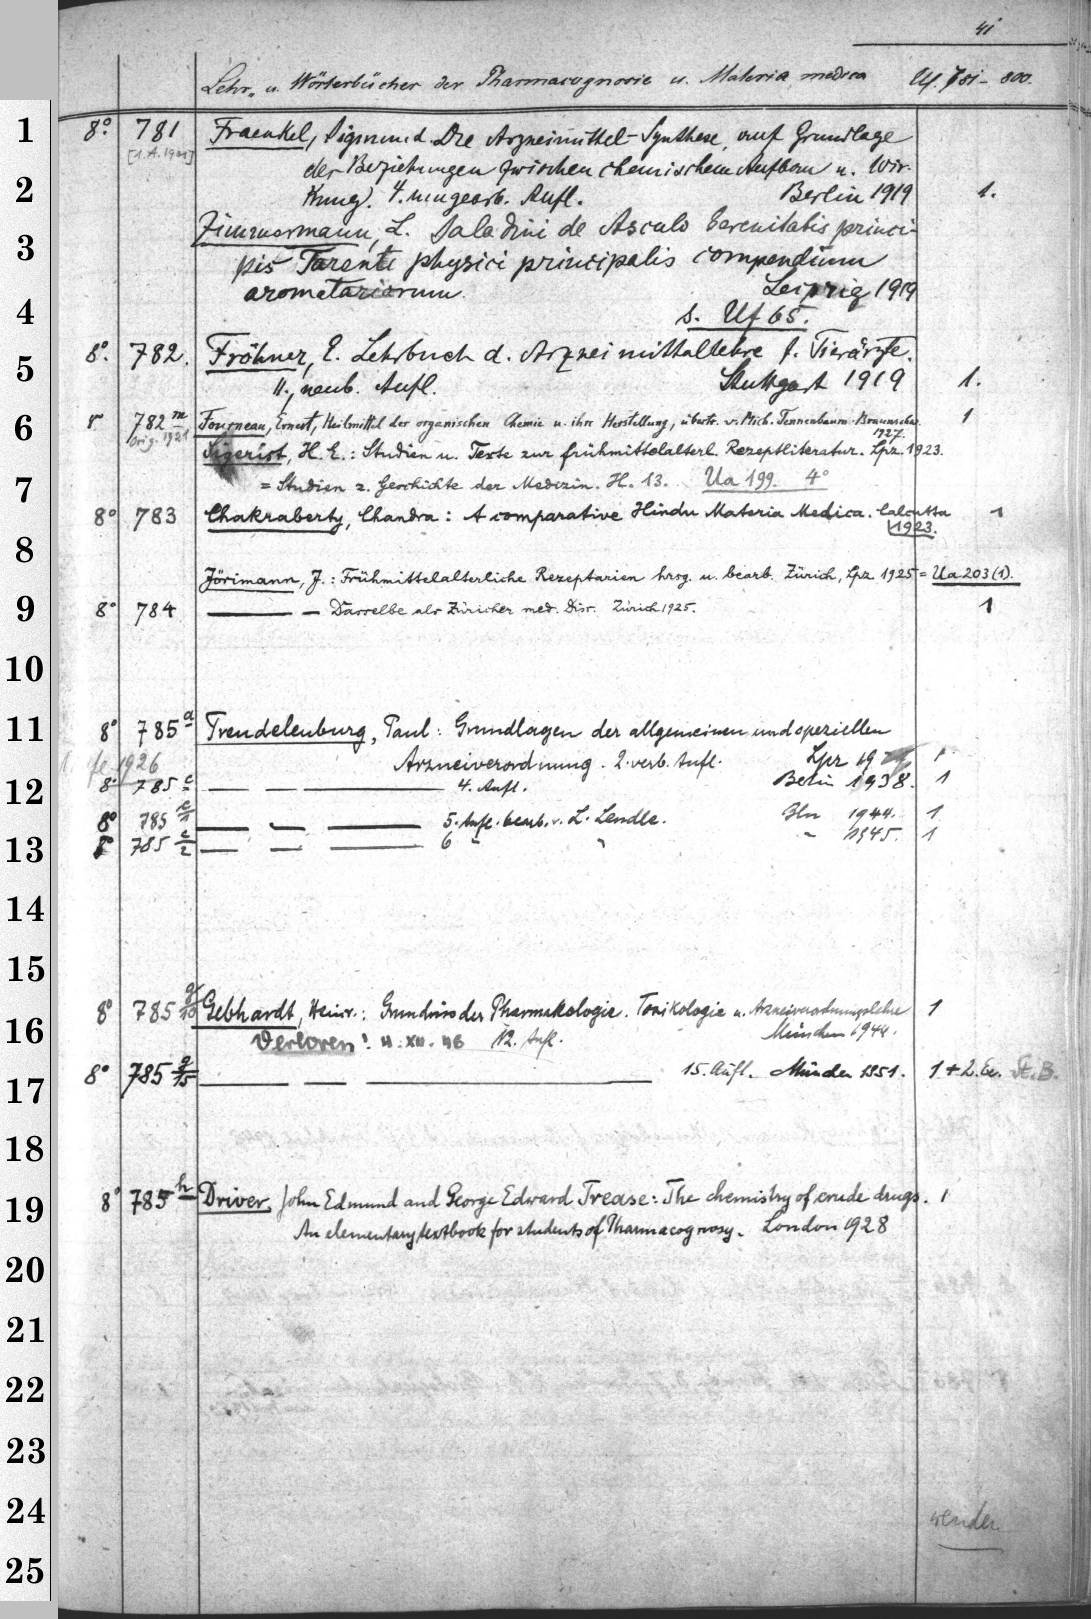 41
Lehr- u. Wörterbücher der Pharmacognosie u. Materia medica Uf. 781-800.
1
8° 781 Fraenkel, Sigmund. Die Arzneimittel-Synthese, auf Grundlage
[1.A.1901]
der Beziehungen zwischen chemischem Aufbau u. Wir-
2
kung. 4. umgearb. Aufl. Berlin 1919 1.
Zimmermann, L. Saladini de Asculo Serenitatis princi-
3
pis Tarenti physici principalis compendium
aromatariorum. Leipzig 1919
4
s. Uf 65.
8°. 782. Fröhner, E. Lehrbuch d. Arzneimittellehre f. Tierärzte.
5
11., neub. Aufl. Stuttgart 1919 1.
6
782 m Fourneau, Ernest, Heilmittel der organischen Chemie u. ihre Herstellung, übertr. v. Mich. Tennenbaum. Braunschw. 1
Orig. 1921 1927.
Sigerist, H. E.: Studien u. Texte zur frühmittelalterl. Rezeptliteratur. Lpz. 1923.
7
= Studien z. Geschichte der Medizin. H. 13. Ua 199. 4°
8° 783 Chakraberty, Chandra: A comparative Hindu Materia Medica. Calcutta 1
1923.
8
Jörimann, J.: Frühmittelalterliche Rezeptarien hrsg. u. bearb. Zürich, Lpz. 1925 = Ua 203 (1).
9
8° 784 — — Dasselbe als Züricher med. Diss. Zürich 1925. 1
10
11
8° 785 a Trendelenburg, Paul: Grundlagen der allgemeinen und speziellen
Arzneiverordnung. 2. verb. Aufl. Lpz 19 1.
1926
12
8° 785 c — — — 4. Aufl. Berlin 1938. 1
8° 785 c/1 — — — 5. Aufl. bearb. v. L. Lendle. Bln 1944. 1
13
785 c/2 — — — 6 " " " 1945. 1
14
15
8° 785 g/10 Gebhardt, Heinr.: Grundriss der Pharmakologie. Toxikologie u. Arzneiverordnungslehre 1
16
Verloren! 4. XII. 46 12. Aufl. München 1944.
17
8° 785 g/15 — — — 15. Aufl. München 1951. 1 + 2. Ex. St. B.
18
19
8° 785 h Driver, John Edmund and George Edward Trease: The chemistry of crude drugs. 1
An elementary textbook for students of Pharmacognosy. London 1928
20
21
22
23
24
wenden
25